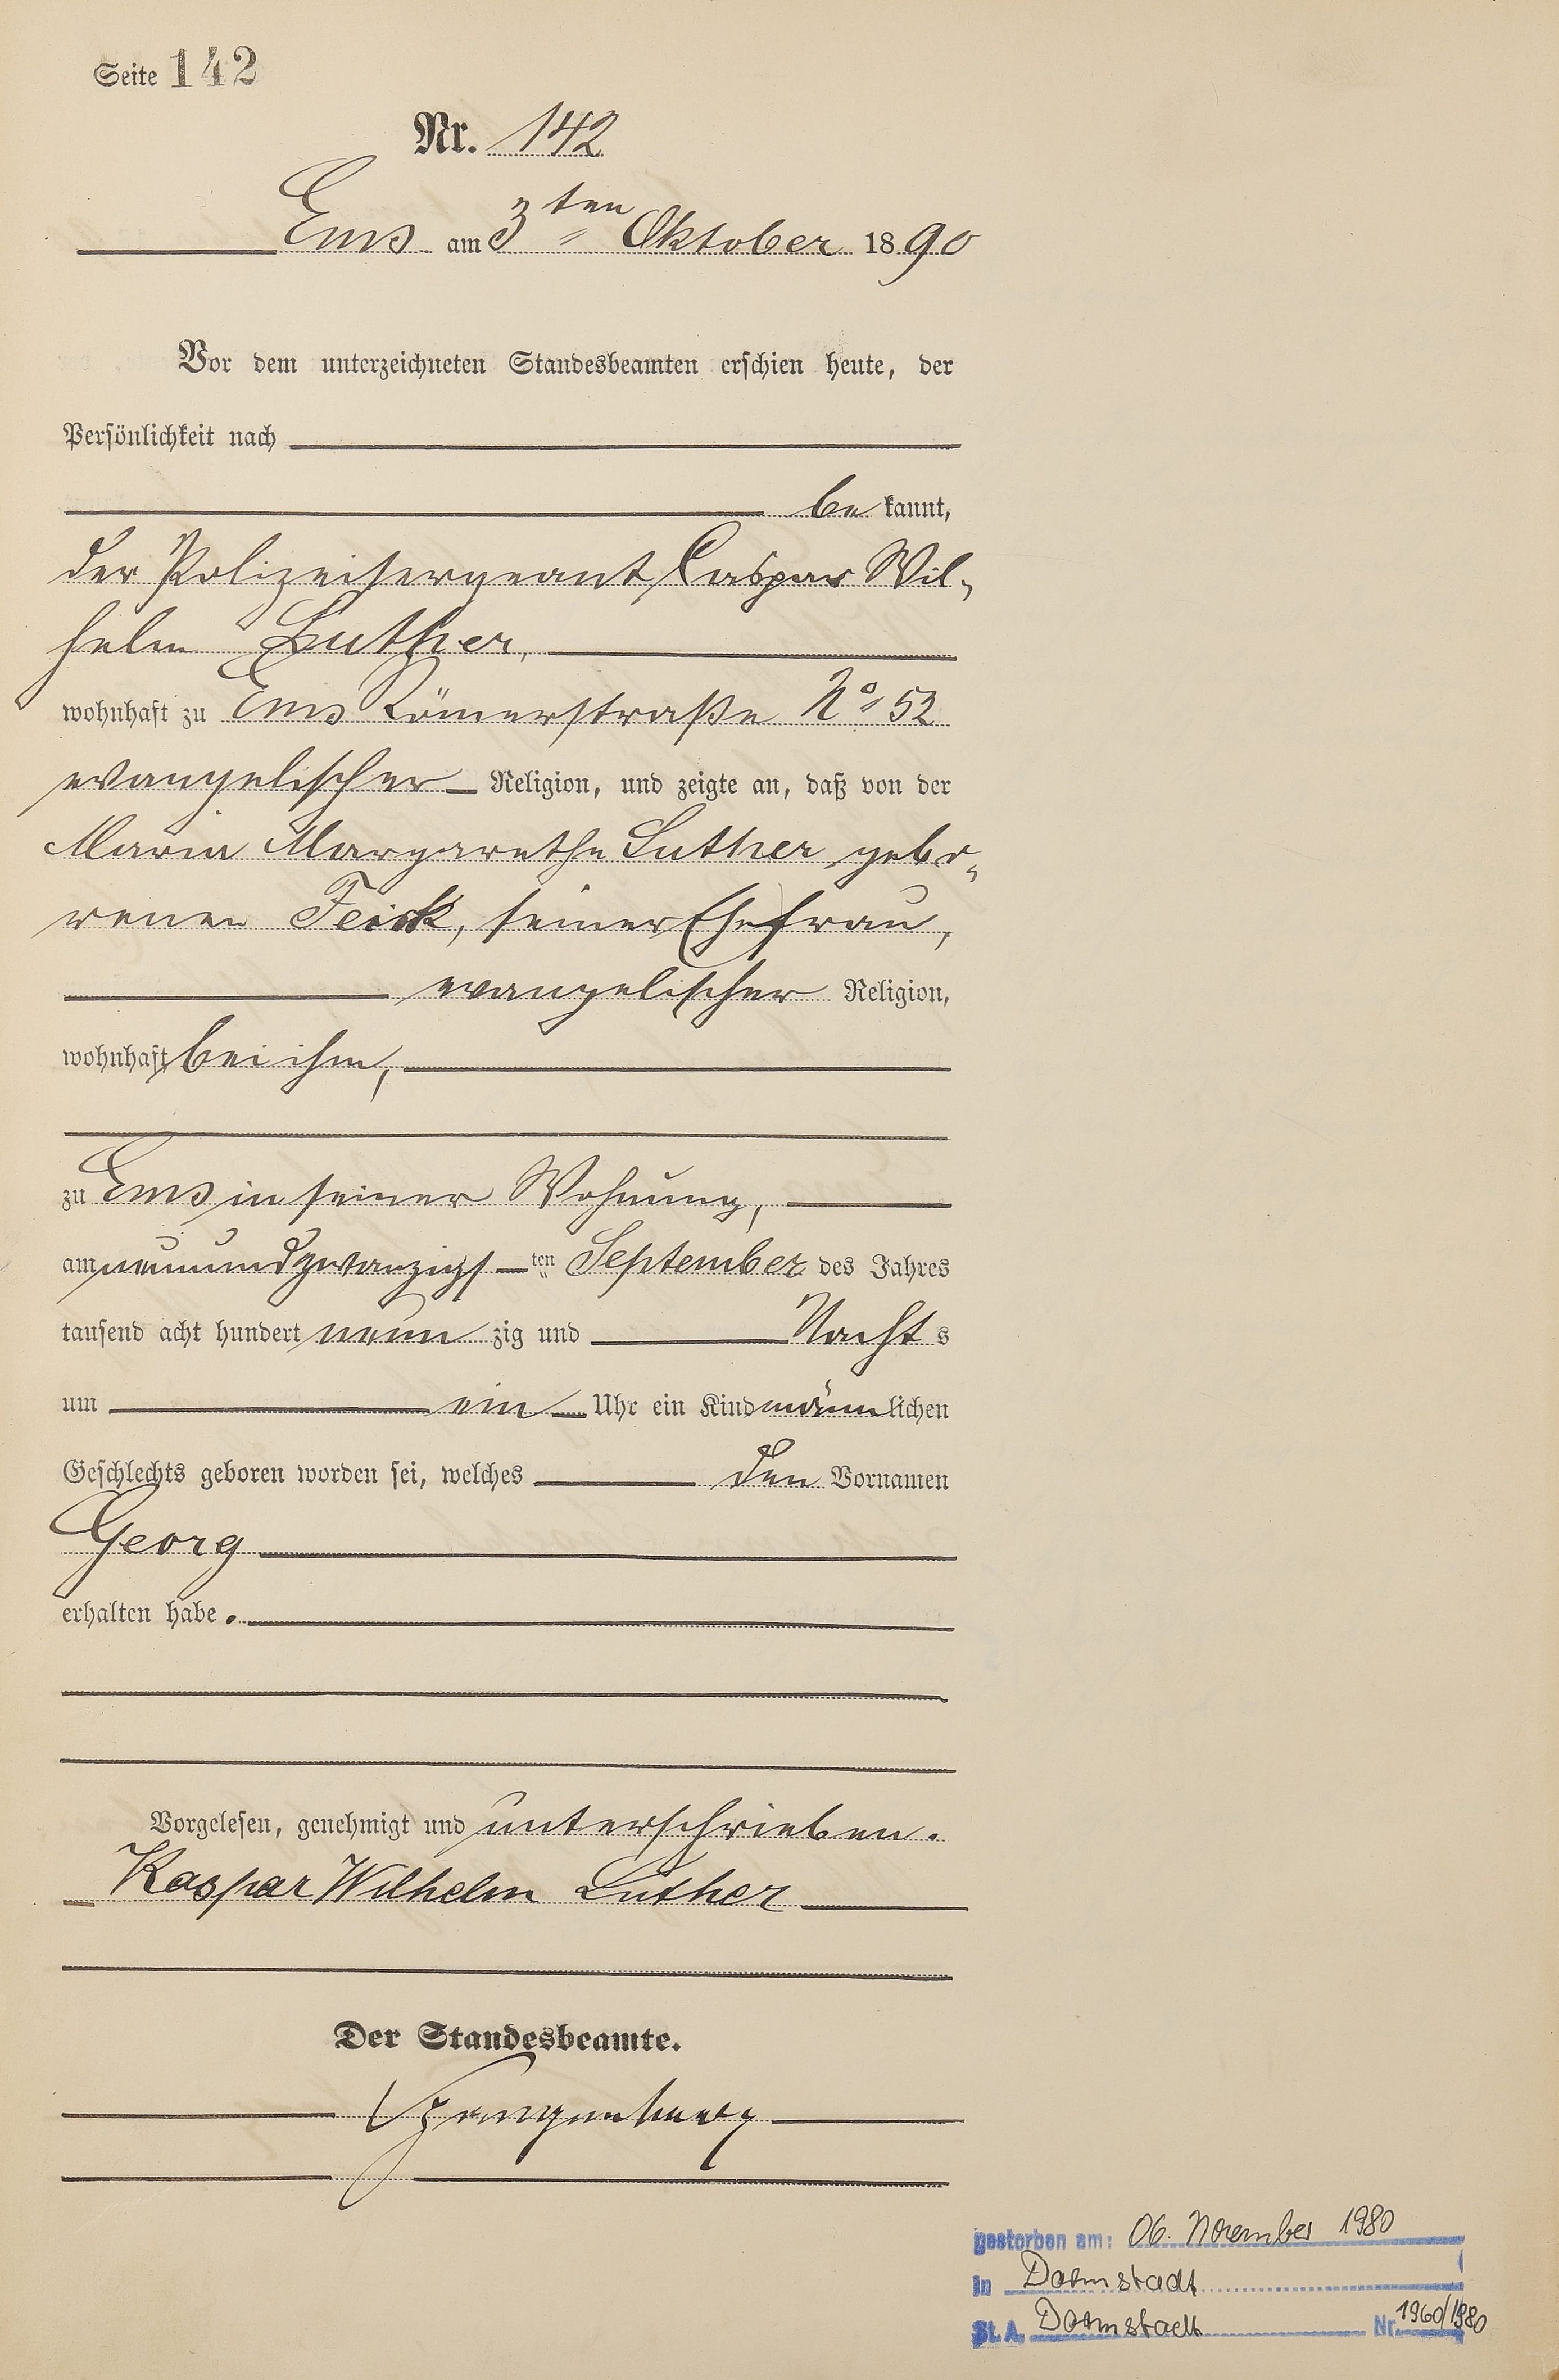 Seite 142
Nr. 142
Ems am 3ten Oktober 1890
Vor dem unterzeichneten Standesbeamten erschien heute, der
Persönlichkeit nach
be kannt,
der Polizeisergeant Caspar Wil-
helm Luther,
wohnhaft zu Ems Römerstraße No 52
evangelischer Religion, und zeigte an, daß von der
Maria Margarethe Luther gebo-
renen Feick, seiner Ehefrau,
evangelischer Religion,
wohnhaft bei ihm,
zu Ems in seiner Wohnung,
am neunundzwanzigsten September des Jahres
tausend acht hundert neun zig und Nachts
um ein Uhr ein Kind männlichen
Geschlechts geboren worden sei, welches den Vornamen
Georg
erhalten habe.
Vorgelesen, genehmigt und unterschrieben.
Kaspar Wilhelm Luther
Der Standesbeamte.
Spangenberg
gestorben am: 06. November 1980
in Darmstadt
St. A. Darmstadt Nr. 1960/1980